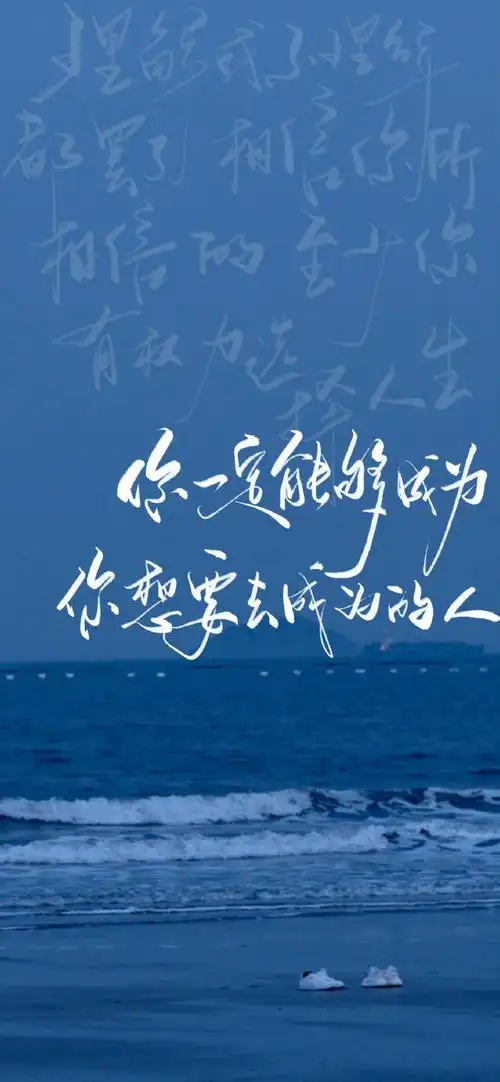 理解或不理解
都罢了 相信你所
相信的 至少你
有权力选择人生
你一定能够成为
你想要去成为的人